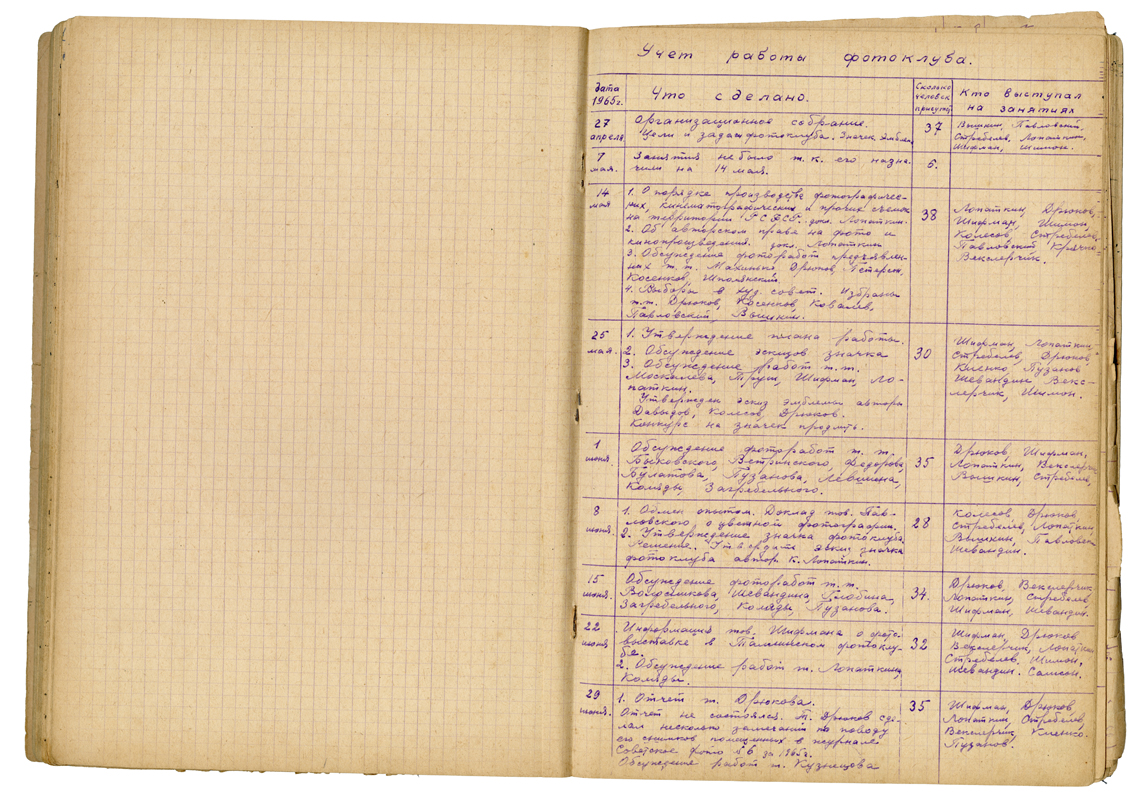 Учет работы фотоклуба.
дата 1965г.
Что сделано.
Сколько человек присутс
Кто выступал на занятиях
27 апреля
Организационное собрание.
Цели и задачи фотоклуба. Значек, эмблем
37
Вышкин, Павловский,
Стребелев, Лопаткин,
Шифман, Шимон.
7 мая.
Занятия не было т.к. его назна-
чили на 14 мая.
5.
14 мая
1. О порядке производства фотографичес-
ких, кинематографических и прочих съемок
на территории РСФСР. докл. Лопаткин.
2. Об авторском праве на фото и
кинопроизведения. докл. Лопаткин
3. Обсуждение фоторабот предъявлен-
ных т.т. Махинько, Дрюков, Петерсен,
Косенков, Шполянский.
4. Выборы в худ. совет. Избраны
т.т. Дрюков, Косенков, Ковалев,
Павловский, Вышкин.
38
Лопаткин, Дрюков,
Шифман, Шимон
Колесов, Стребелев,
Павловский
Векслерчик.
25 мая.
1. Утверждение плана работы.
2. Обсуждение эскизов значка
3. Обсуждение работ т.т.
Москалева, Труш, Шифман, Ло-
паткин.
Утвержден эскиз эмблемы авторы
Давыдов, Колесов, Дрюков.
Конкурс на значек продлить.
30
Шифман, Лопаткин,
Стребелев, Дрюков
Киенко, Пузанов
Шевандин, Векс-
лерчик, Шимон.
1 июня.
Обсуждение фоторабот т.т.
Быковского, Ветринского, Федорова,
Булатова, Пузанова, Левшина,
Коляды, Загребельного.
35
Дрюков, Шифман,
Лопаткин, Векслерчик
Вышкин, Стребелев,
8 июня.
1. Обмен опытом. Доклад тов. Пав-
ловского о цветной фотографии.
2. Утверждение значка фотоклуба
Решение. Утвердить эскиз значка
фотоклуба автор К. Лопаткин.
28
Колесов, Дрюков
Стребелев, Лопаткин
Вышкин, Павловск
Шевандин.
15 июня.
Обсуждение фоторабот т.т.
Волосникова, Шевандина, Злобина,
Загребельного, Коляды, Пузанова.
34.
Дрюков, Векслерчик
Лопаткин, Стребелев
Шифман, Шевандин.
22 июня
1. Информация тов. Шифмана о фото-
выставке в Таллинском фотоклу-
бе.
2. Обсуждение работ т. Лопаткина,
Коляды.
32
Шифман, Дрюков
Векслерчик, Лопаткин
Стребелев, Шимон,
Шевандин.
29 июня.
1. Отчет т. Дрюкова.
Отчет не состоялся. Т. Дрюков сде-
лал несколько замечаний по поводу
его снимков помещенных в журнале
Советское фото №6 за 1965г.
Обсуждение работ т. Кузнецова
35
Шифман, Дрюков
Лопаткин, Стребелев,
Векслерчик, Киенко.
Пузанов.